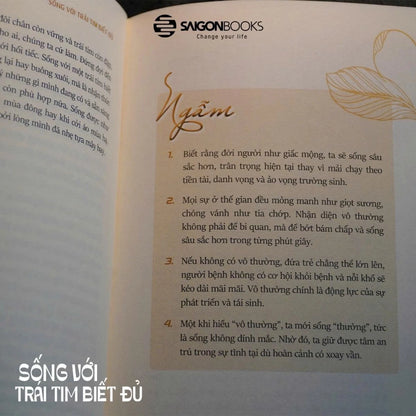 SỐNG VỚI TRÁI TIM BIẾT ĐỦ
SAIGONBOOKS
Change your life
đôi chân còn vững và trái tim còn
ho ai, chúng ta cứ làm. Đừng đợi đến
ới hối tiếc. Sống với một trái tim biết
g lại hay buông xuôi, mà là nhận thức
những gì mình đang có và sẵn sàng
còn phù hợp nữa. Sống được như
mùa đông hay khi cởi áo mùa
ởi lòng mình đã nhẹ tựa mây bay.
Ngẫm
1. Biết rằng đời người như giấc mộng, ta sẽ sống sâu
sắc hơn, trân trọng hiện tại thay vì mải chạy theo
tiền tài, danh vọng và ảo vọng trường sinh.
2. Mọi sự ở thế gian đều mỏng manh như giọt sương,
chóng vánh như tia chớp. Nhận diện vô thường
không phải để bi quan, mà để bớt bám chấp và sống
sâu sắc hơn trong từng phút giây.
3. Nếu không có vô thường, đứa trẻ chẳng thể lớn lên,
người bệnh không có cơ hội khỏi bệnh và nỗi khổ sẽ
kéo dài mãi mãi. Vô thường chính là động lực của sự
phát triển và tái sinh.
4. Một khi hiểu “vô thường”, ta mới sống “thường”, tức
là sống không dính mắc. Nhờ đó, ta giữ được tâm an
trú trong sự tĩnh tại dù hoàn cảnh có xoay vần.
SỐNG VỚI
TRÁI TIM BIẾT ĐỦ